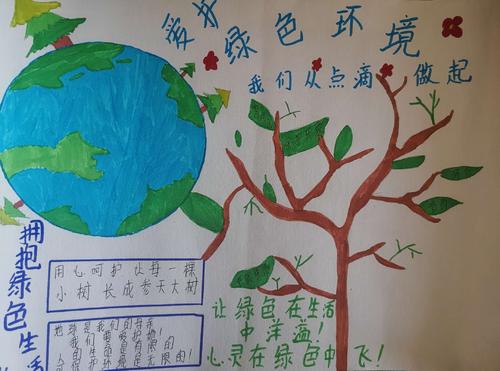 爱护
绿色环境
我们从点滴做起
拥抱绿色生活
用心呵护让每一棵
小树长成参天大树
地球是我们的
我们要爱护她!
让绿色在生活
中洋溢!
心灵在绿色中飞!